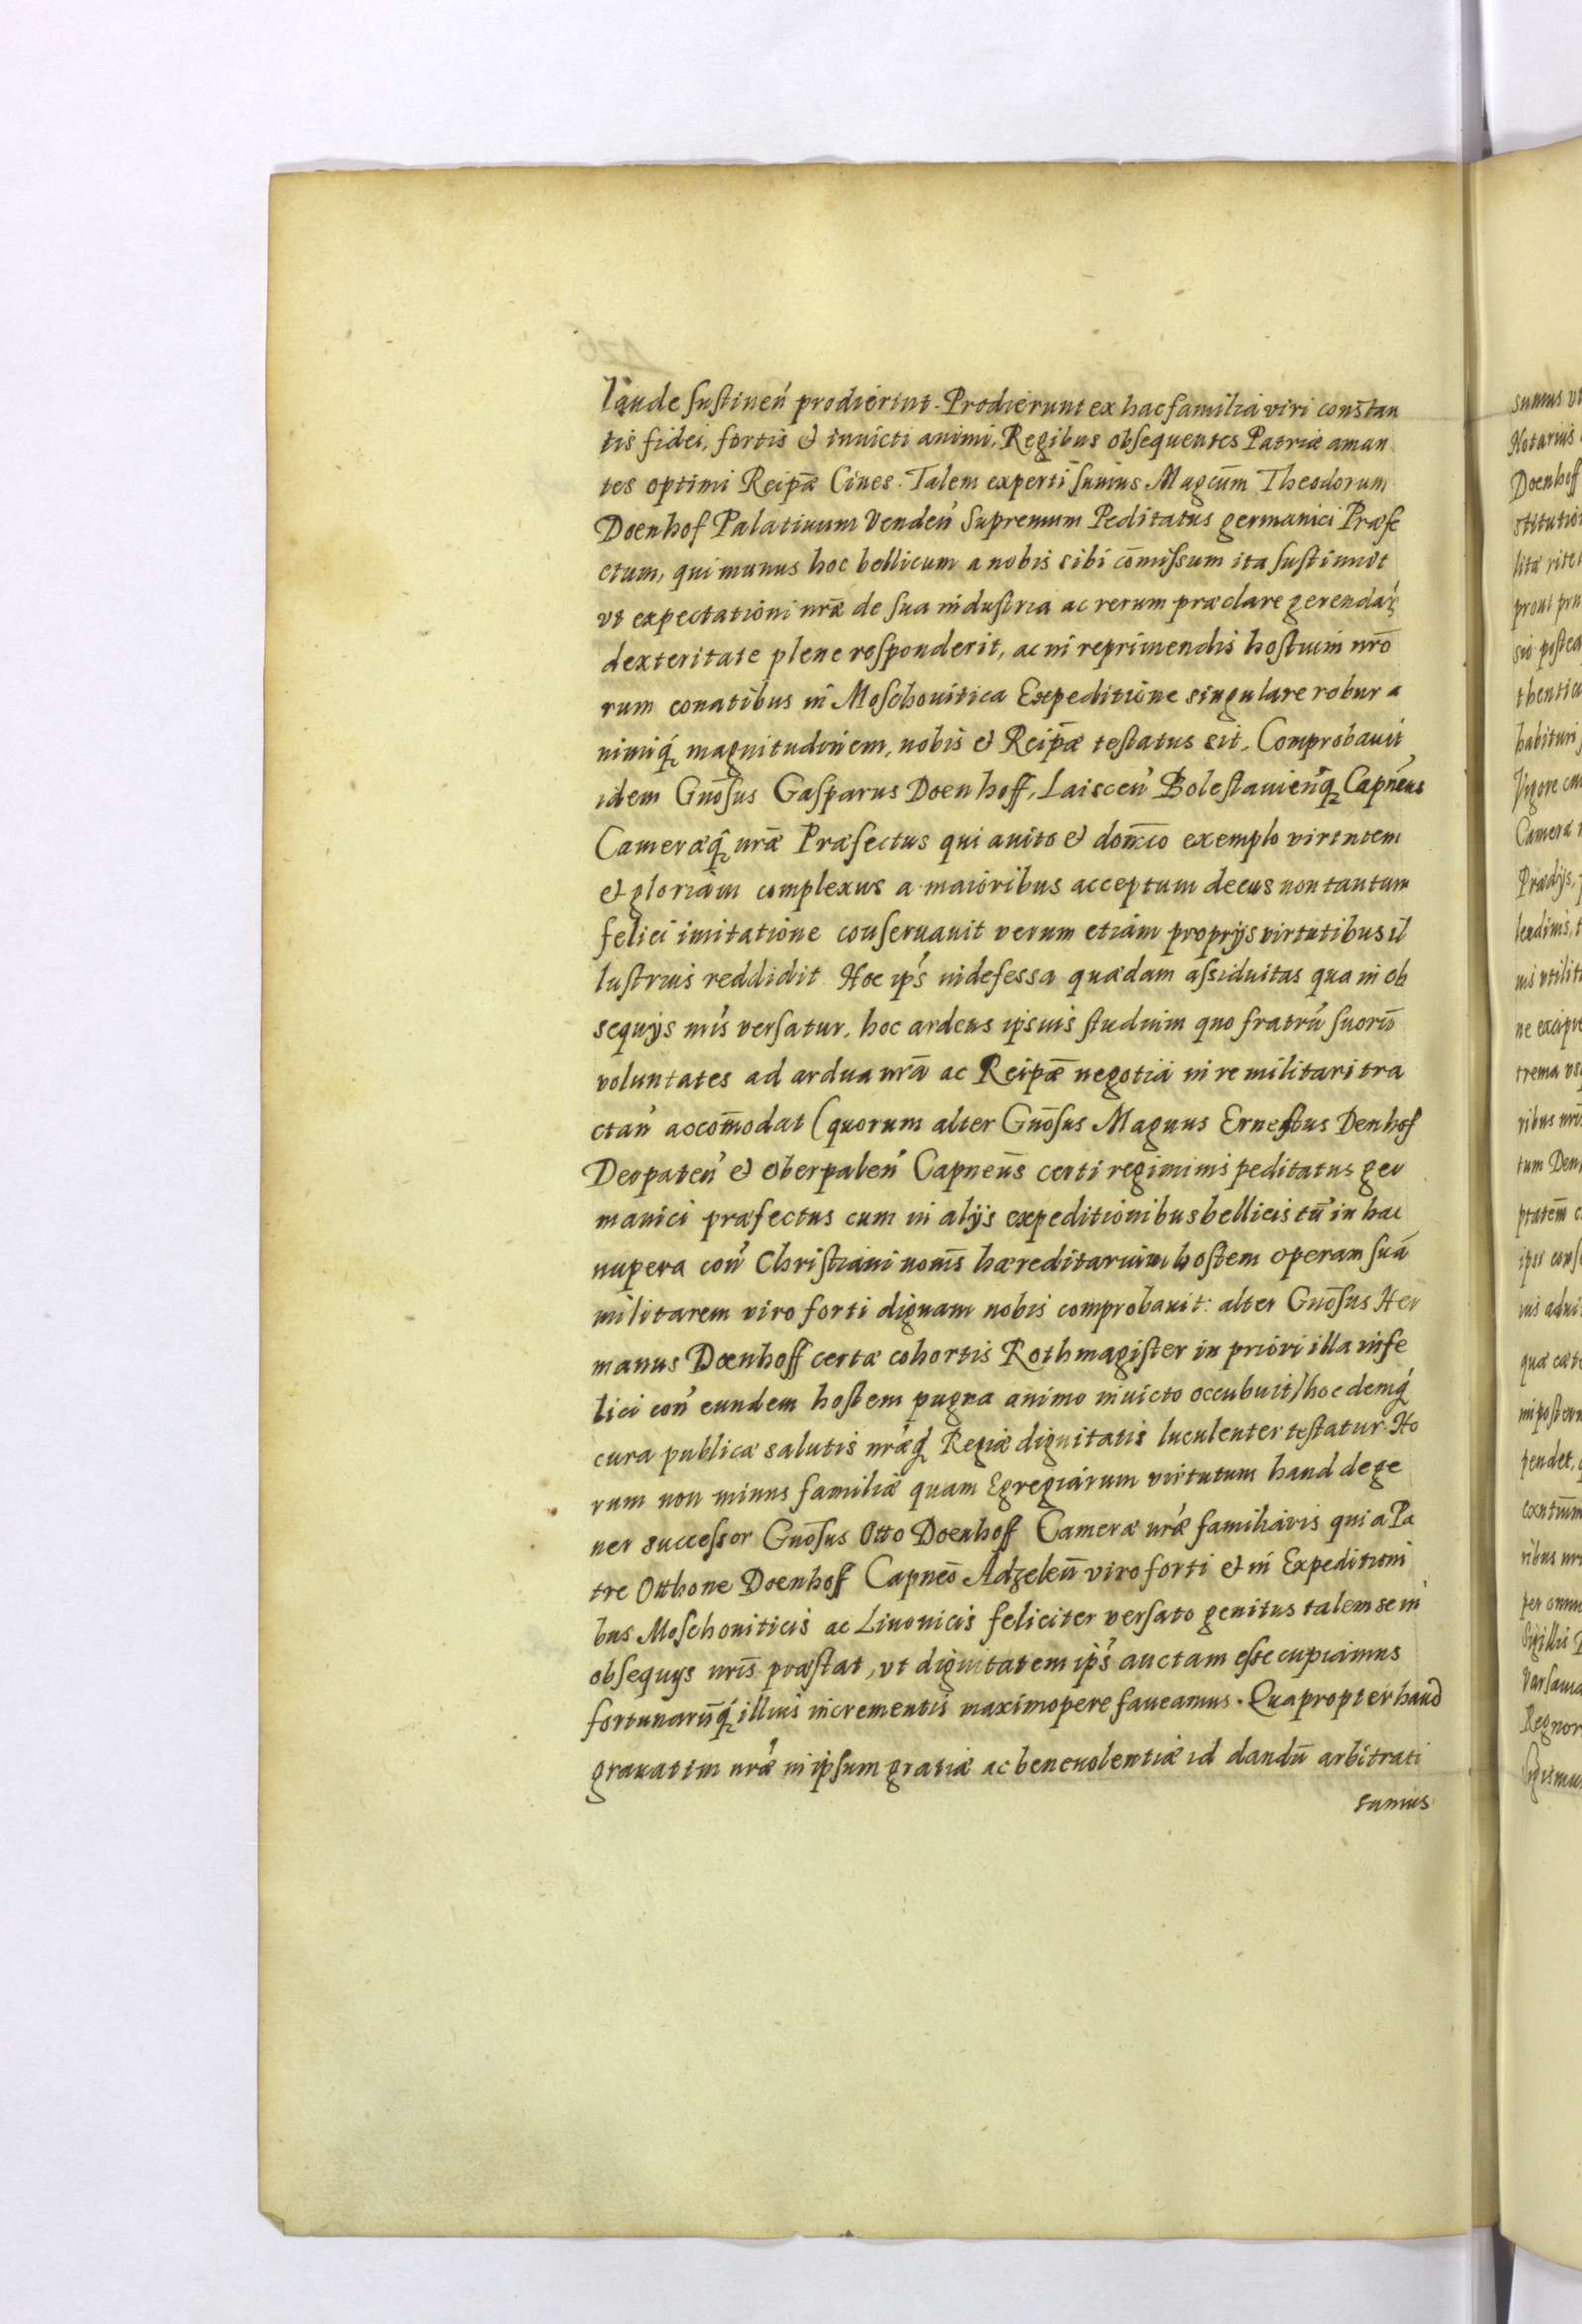 laude sustineń prodierint. Prodierunt ex hac familia viri constan
tis fidei, fortis et invicti animi, Regibus obsequentes Patriæ aman
tes optimi Reipæ Ciues. Talem experti sumus Magcūm Theodorum
Doenhof Palatinum Vendeń Supremum Peditatus germanici Præfe
ctum, qui munus hoc bellicum a nobis sibi cōmissum ita sustinuit
vt expectationi nræ de sua industria ac rerum præclare gerendaꝝ
dexteritate plene responderit, ac in reprimendis hostium nrō
rum conatibus in Moschouitica Expeditione singulare robur a
nimiq́ magnitudinem, nobis et Reipæ testatus sit. Comprobauit
idem Gnōsus Gasparus Doenhoff, Laisceń Boleslauienq́ Capneus
Cameræq́ nræ Præfectus qui auito et domco exemplo virtutem
et gloriam complexus a maioribus acceptum decus non tantum
felici imitatione conseruauit verum etiam proprijs virtutibus il
lustrius reddidit. Hoc ips indefessa quædam assiduitas qua in ob
sequijs nris versatur, hoc ardens ipsuis studium quo fratrū suorū
voluntates ad ardua nrā ac Reipæ negotia in re militari tra
ctań accomodat (quorum alter Gnōsus Magnus Ernestus Denhof
Deopateń et Oberpaleń Capneūs certi regiminis peditatus ger
manici præfectus cum in alijs expeditionibus bellicis tū in hac
nupera coń Christiani nomīs hæreditarium hostem operam suā
militarem viro forti dignam nobis comprobauit: alter Gnōsus Her
manus Doenhoff certæ cohortis Rothmagister in priori illa infe
lici coń eundem hostem pugna animo inuicto occubuit) hoc demq́
cura publicæ salutis nræq́ Regiæ dignitatis luculenter testatur. Ho
rum non minus familiæ quam Egregiarum virtutum haud dege
ner successor Gnōsus Otto Doenhoff Cameræ nræ familiaris qui a Pa
tre Otthone Doenhof Capneō Adzeleń viro forti et in Expeditioni
bus Moschouiticis ac Liuonicis feliciter versato genitus talem se in
obsequijs nrīs præstat, vt dignitatem ips auctam esse cupiamus
fortunarūq́ illius incrementis maximopere faueamus. Quapropter haud
grauatim nræ in ipsum gratiæ ac beneuolentiæ id dandū arbitrati
sumus